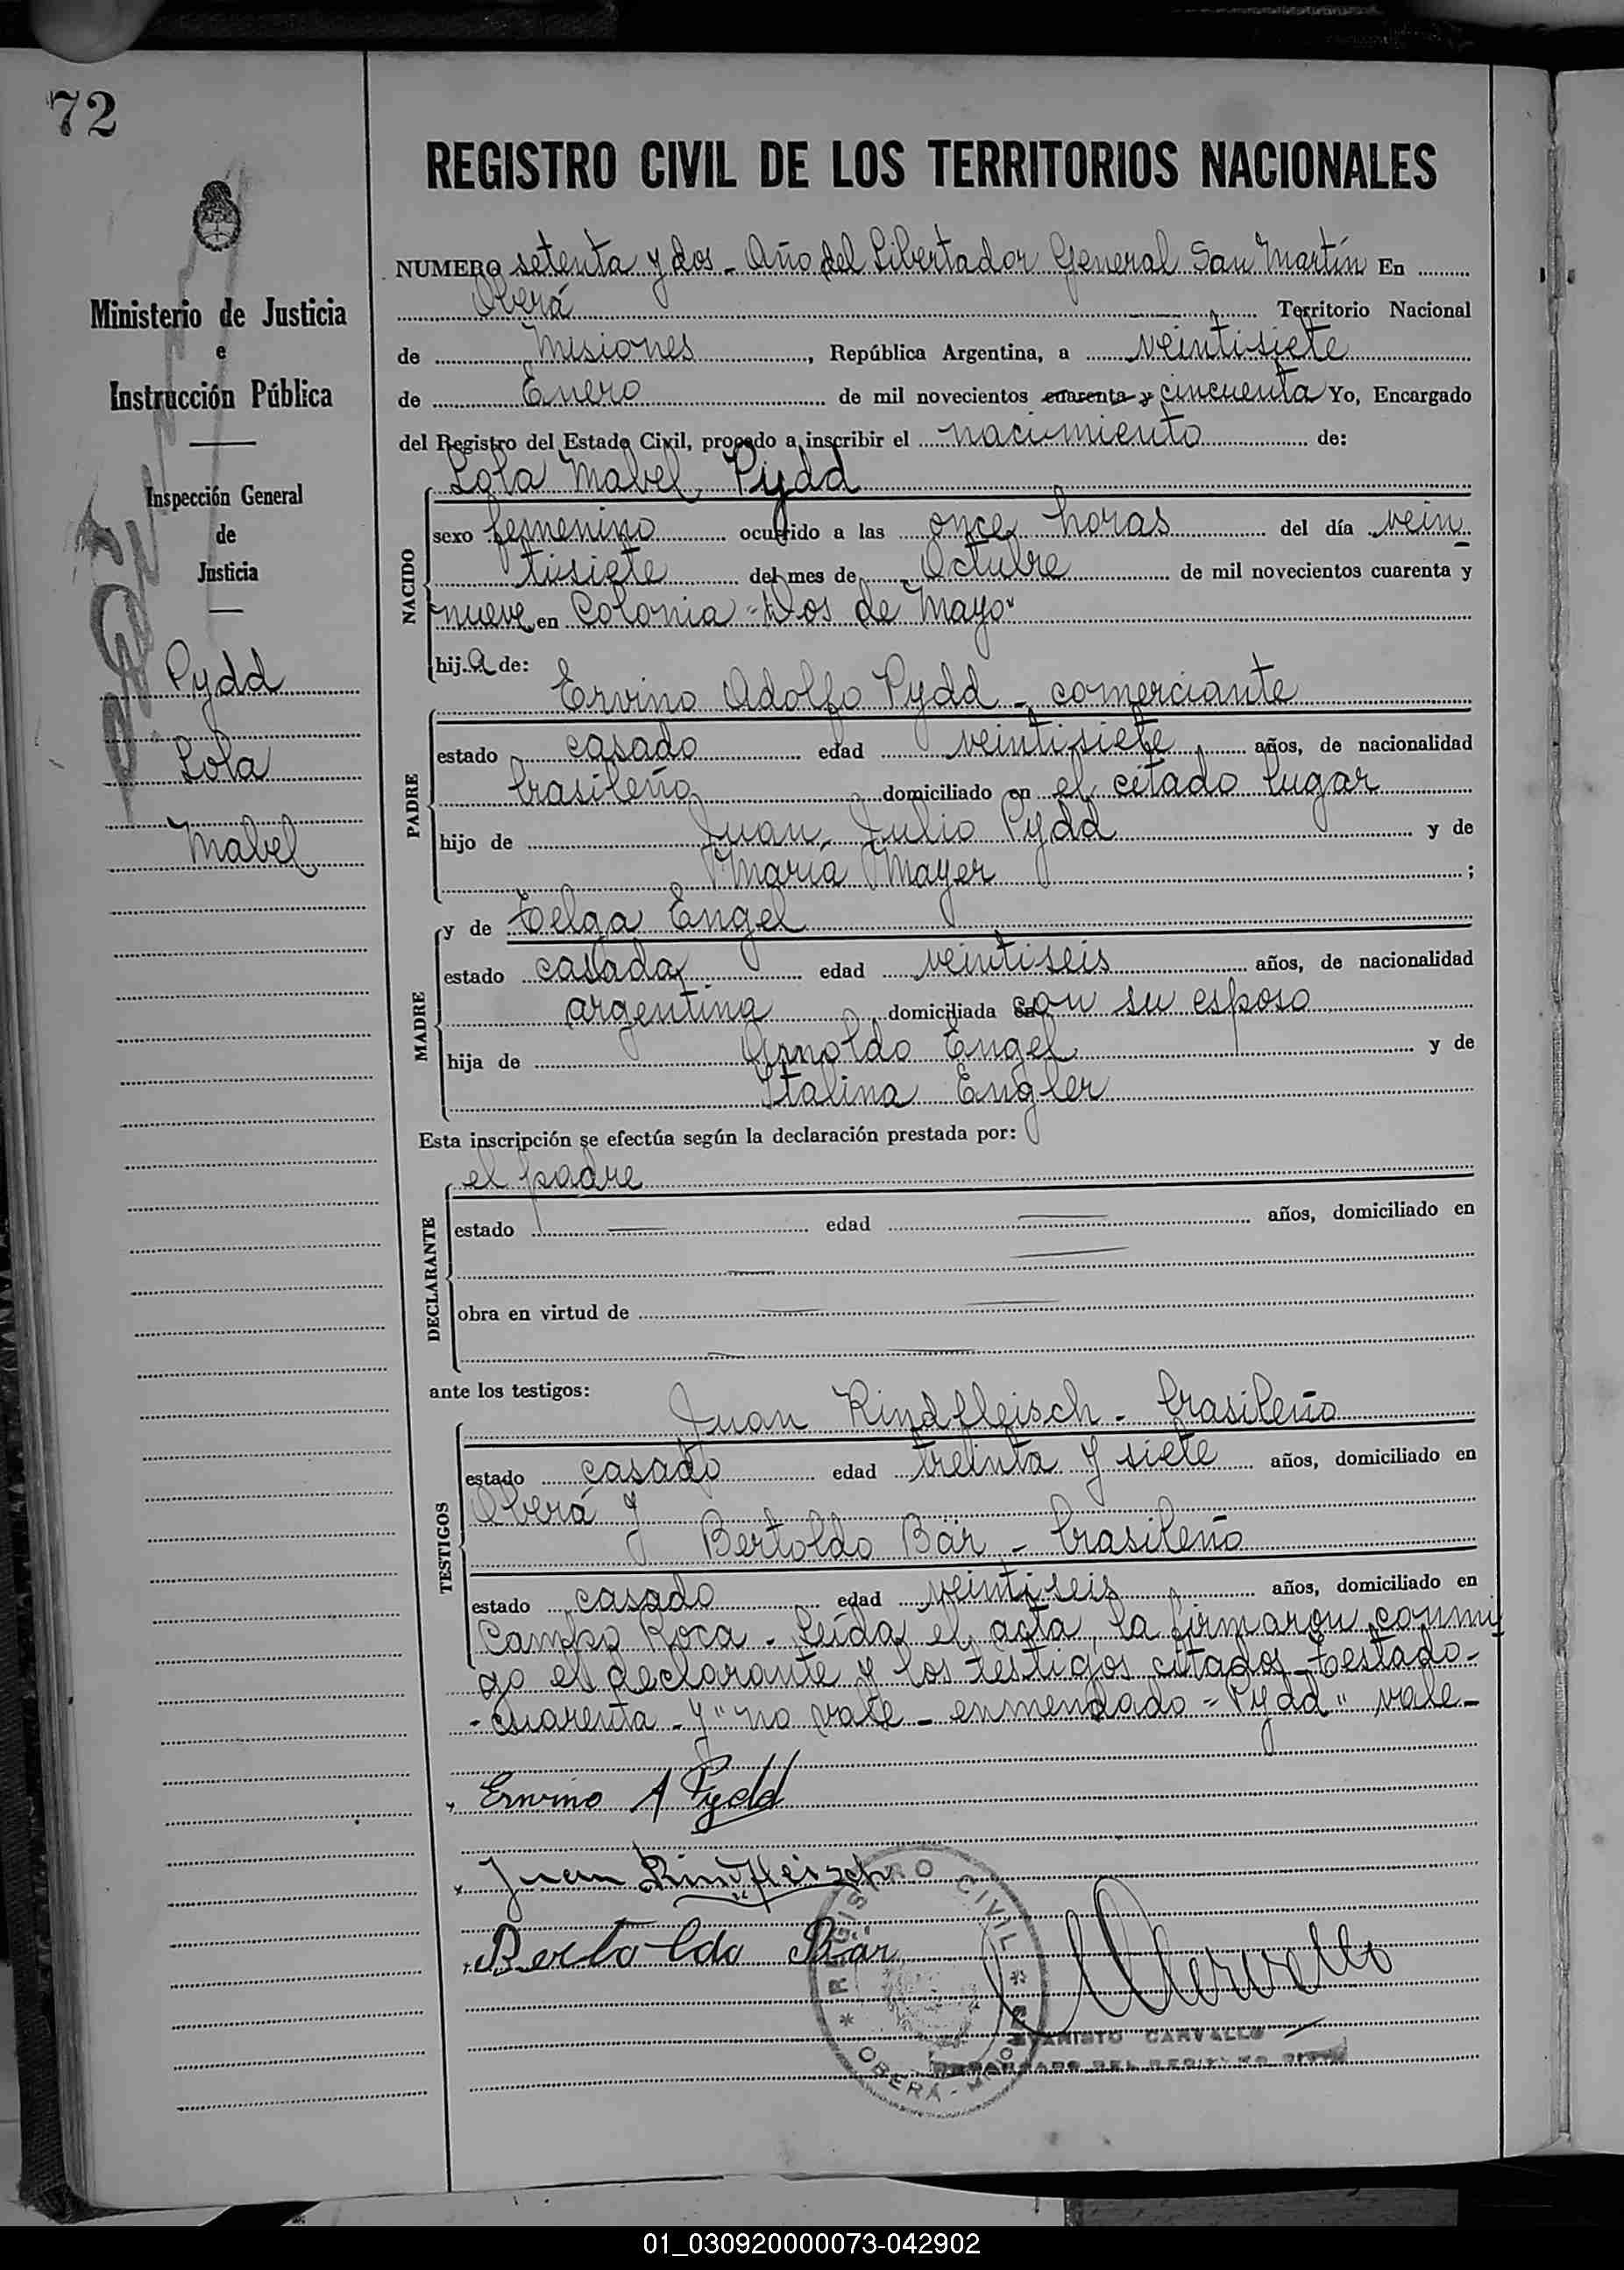 72
REGISTRO CIVIL DE LOS TERRITORIOS NACIONALES
Ministerio de Justicia
e
Instrucción Pública
Inspección General
de
Justicia
Pydd
Lola
Mabel
NUMERO setenta y dos - Año del Libertador General San Martín En
Oberá Territorio Nacional
de Misiones, República Argentina, a veintisiete
de Enero de mil novecientos cuarenta y cincuenta Yo, Encargado
del Registro del Estado Civil, procedo a inscribir el nacimiento de:
Lola Mabel Pydd
NACIDO
sexo femenino ocurrido a las once horas del día vein
tisiete del mes de Octubre de mil novecientos cuarenta y
nueve en Colonia "Dos de Mayo"
hija de:
Ervino Adolfo Pydd - comerciante
PADRE
estado casado edad veintisiete años, de nacionalidad
brasileño domiciliado en el citado lugar
hijo de Juan Julio Pydd y de
María Mayer ;
MADRE
y de Helga Engel
estado casada edad veintiseis años, de nacionalidad
argentina, domiciliada con su esposo
hija de Arnoldo Engel y de
Italina Engler
Esta inscripción se efectúa según la declaración prestada por:
el padre
DECLARANTE
estado edad años, domiciliado en
obra en virtud de
ante los testigos:
Juan Rindfleisch - brasileño
TESTIGOS
estado casado edad treinta y siete años, domiciliado en
Oberá y
Bertoldo Bär - brasileño
estado casado edad veintiseis años, domiciliado en
Campo Roca - Leída el acta, la firmaron conmi
go el declarante y los testigos citados - Testado -
- cuarenta - y" no vale - enmendado - "Pydd" vale -
Ervino A Pydd
Juan Rindfleisch
Bertoldo Bär
REGISTRO CIVIL
OBERÁ
EVARISTO CARVALLO
ENCARGADO DEL REGISTRO CIVIL
01_030920000073-042902